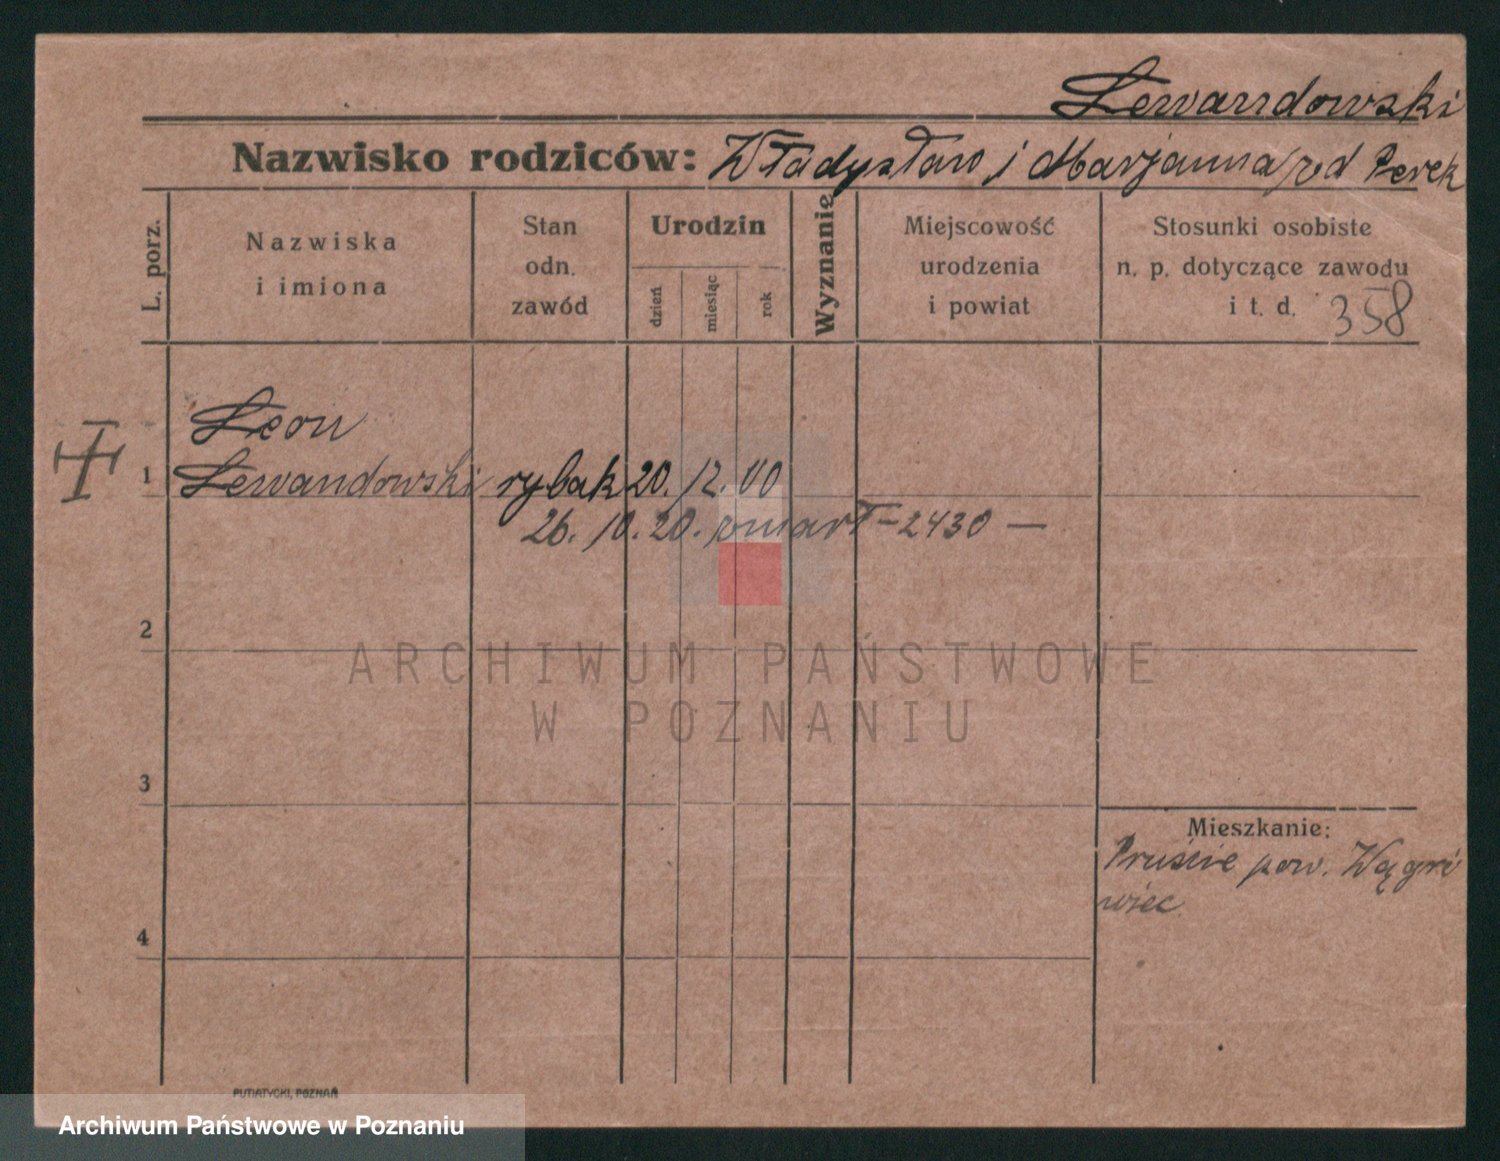 Lewandowski
Nazwisko rodziców: Władysław i Marjanna z d Perek
L. porz.
Nazwiska
i imiona
Stan
odn.
zawód
Urodzin
dzień
miesiąc
rok
Wyznanie
Miejscowość
urodzenia
i powiat
Stosunki osobiste
n. p. dotyczące zawodu
i t. d. 358
Leon
1 Lewandowski rybak 20. 12. 00
26. 10. 20. zmarł - 2430 —
2
ARCHIWUM PAŃSTWOWE
W POZNANIU
3
Mieszkanie:
Pruśce pow. Wągro
wiec
4
PUTIATYCKI, POZNAŃ
Archiwum Państwowe w Poznaniu